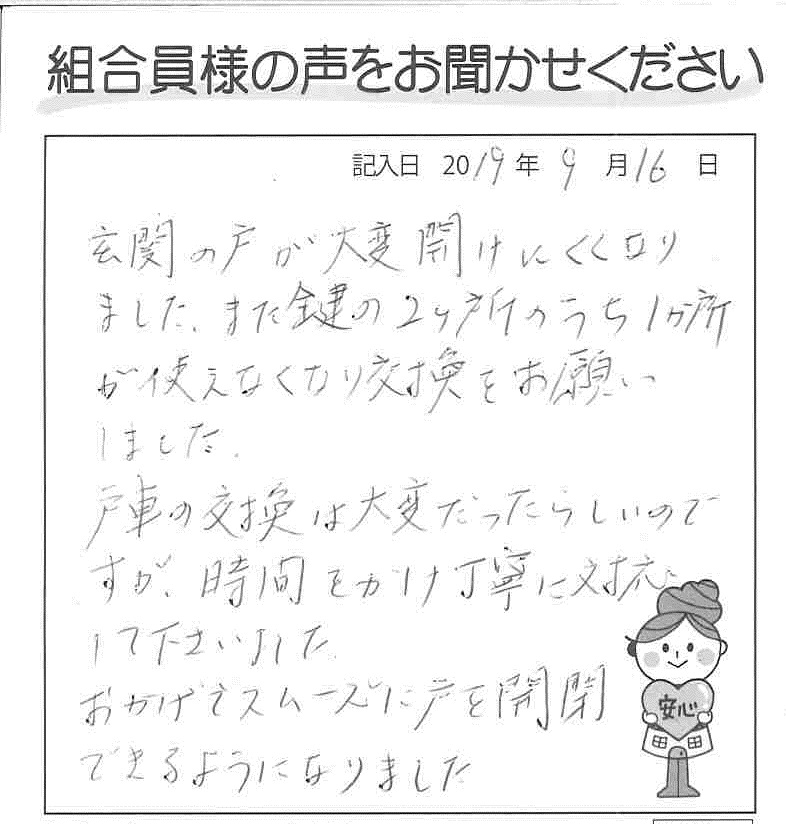 組合員様の声をお聞かせください
記入日 2019年 9月16日
玄関の戸が大変開けにくくなり
ました、また鍵の2ヶ所のうち1か所
が使えなくなり交換をお願い
しました。
戸車の交換は大変だったらしいので
すが、時間をかけ丁寧に対応
して下さいました。
おかげでスムーズに戸を開閉
できるようになりました
安心